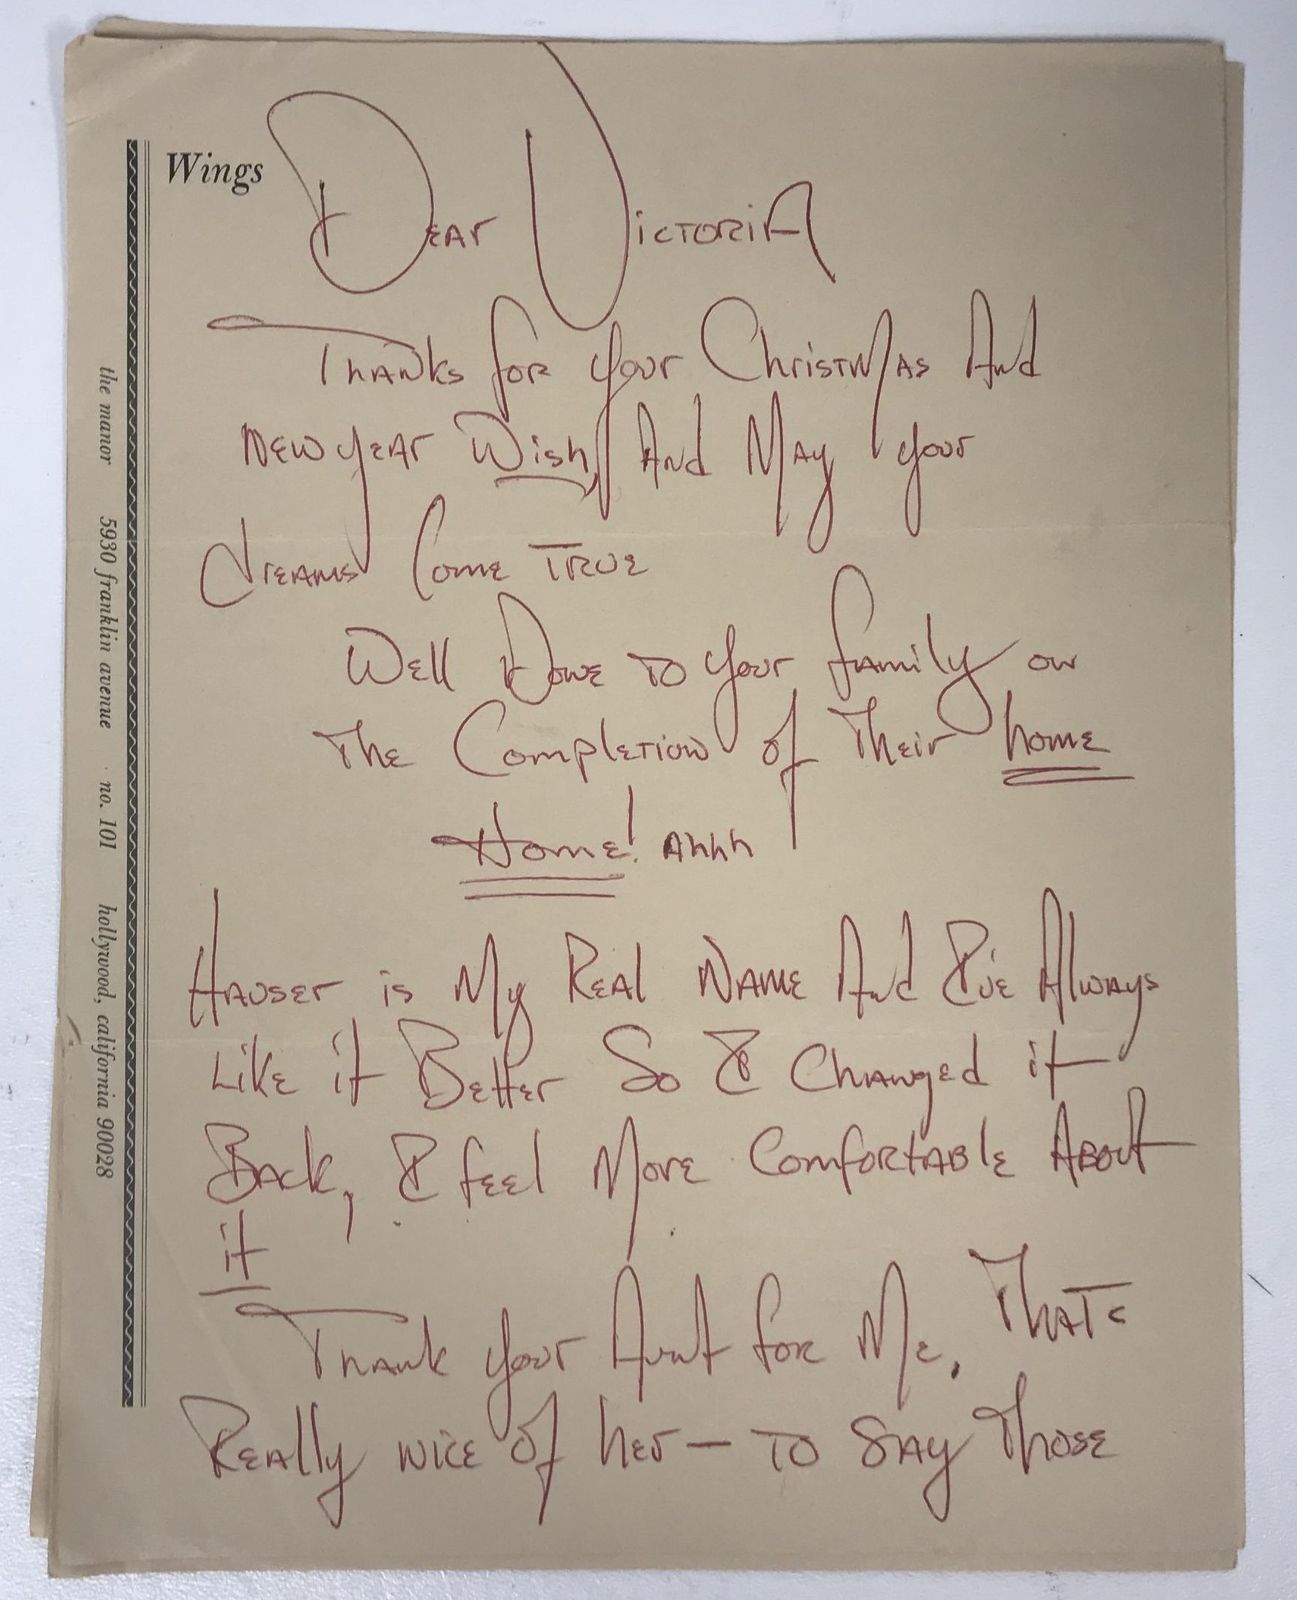 Wings
the manor 5930 franklin avenue · no. 101 hollywood, california 90028
Dear Victoria
Thanks for your Christmas And
New year Wish, And May your
dreams Come True
Well Done to your family on
The Completion of Their home
Home! Ahhh
Hauser is My Real Name And I've Always
Like it Better So I Changed it
Back, I feel More Comfortable About
it
Thank your Aunt for Me. That's
Really nice of her — to say Those